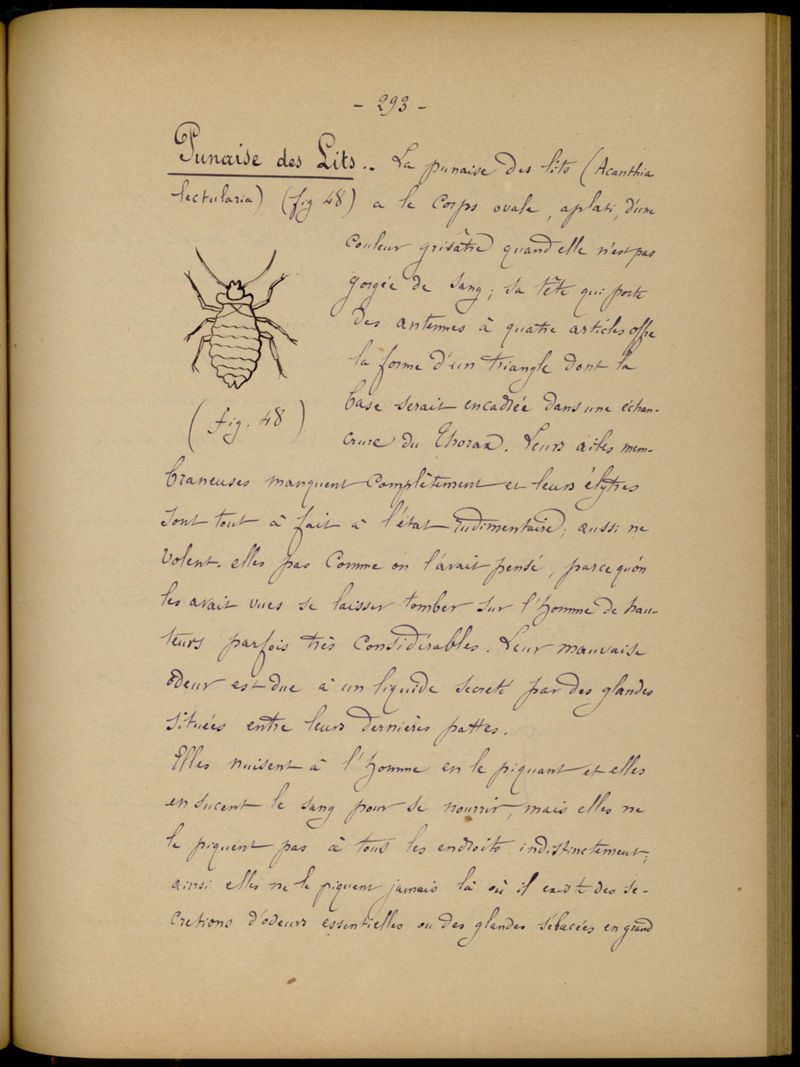 - 293 -
Punaise des Lits.. La punaise des lits (Acanthia
lectularia) (fig 48) a le corps ovale, aplati, d'une
couleur grisâtre quand elle n'est pas
gorgée de sang; sa tête qui porte
des antennes à quatre articles offre
la forme d'un triangle dont la
base serait encadrée dans une échan-
(fig. 48)
crure du thorax. Leurs ailes mem-
braneuses manquent complètement et leurs élytres
sont tout à fait à l'état rudimentaire; aussi ne
volent-elles pas comme on l'avait pensé, parce qu'on
les avait vues se laisser tomber sur l'homme de hau-
teurs parfois très considérables. Leur mauvaise
odeur est due à un liquide secreté par des glandes
situées entre leurs dernières pattes.
Elles nuisent à l'homme en le piquant et elles
en sucent le sang pour se nourrir, mais elles ne
le piquent pas à tous les endroits indistinctement;
ainsi elles ne le piquent jamais là où il existe des sé-
cretions d'odeurs essentielles ou des glandes sébacées en grand